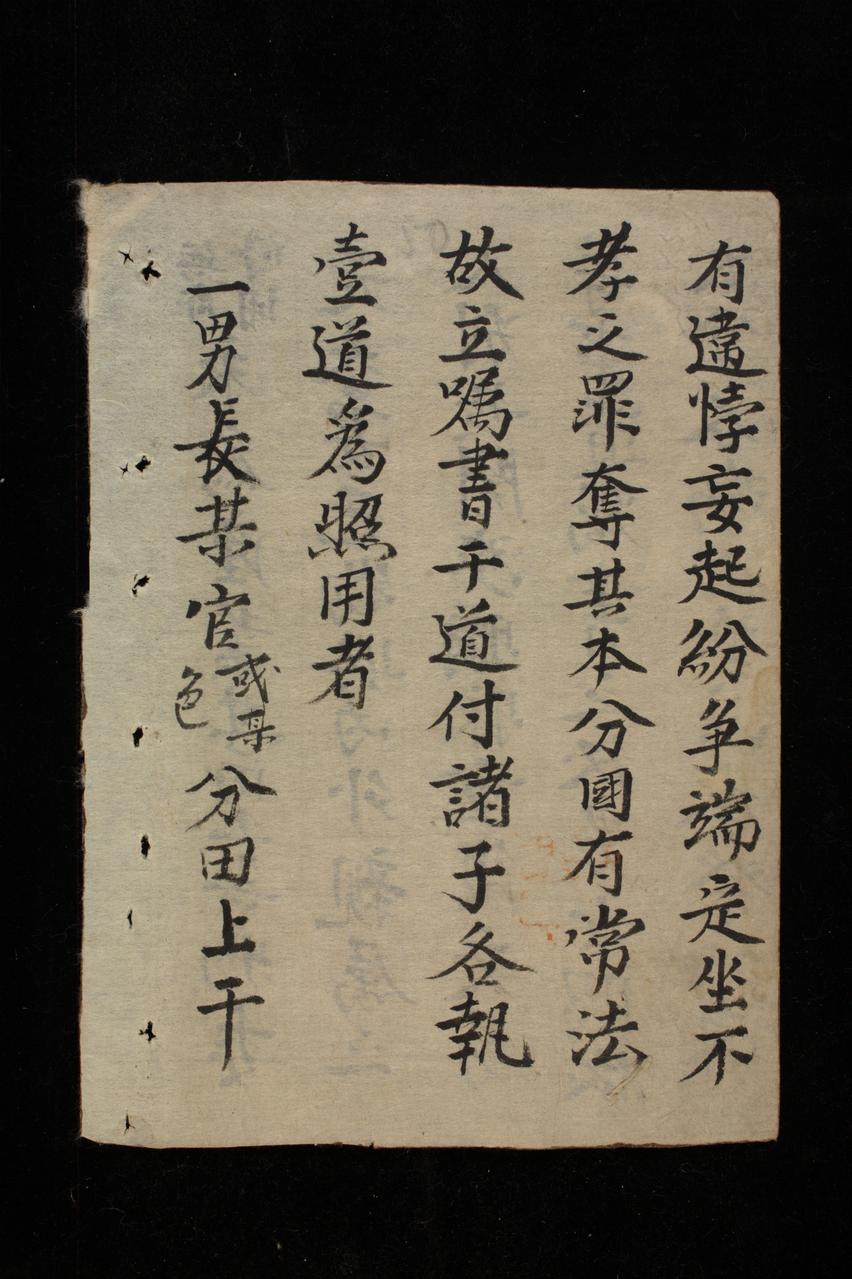 有違悖妄起紛争端定坐不
孝之罪奪其本分國有常法
故立囑書干道付諸子各執
壹道為照用者
一男長某官或某色分田土干